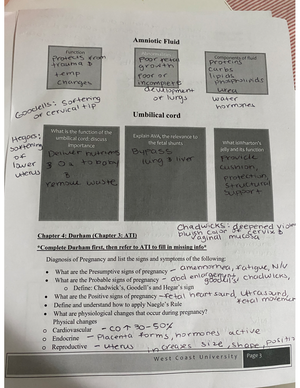 Amniotic Fluid
Function
Protects from
trauma &
temp
changes
Poor fetal
growth
poor or
incomplete
development
of lungs
Components of fluid
Proteins
carbs
lipids
phospholipids
urea
water
hormones
Goodells: Softening
of cervical tip
Umbilical cord
Hegas:
softening
of
lower
uterus
What is the function of the
umbilical cord; discuss
Importance
Deliver nutrients
& O2 to baby
&
remove waste
Explain AVA, the relevance to
the fetal shunts
Bypass
lung & liver
What is Wharton's
jelly and its function
Provide
cushion,
protection,
structural
support
Chadwicks: deepened violet
bluish color of cervix &
vaginal mucosa
Chapter 4: Durham (Chapter 3: ATI)
*Complete Durham first, then refer to ATI to fill in missing info*
Diagnosis of Pregnancy and list the signs and symptoms of the following:
• What are the Presumptive signs of pregnancy - amennorhea, fatigue, N/V
• What are the Probable signs of pregnancy - abd enlargement, chadwicks,
goodells
o Define: Chadwick's, Goodell's and Hegar's sign
• What are the Positive signs of pregnancy - fetal heart sound, ultrasound,
fetal movement
• Define and understand how to apply Naegle's Rule
• What are physiological changes that occur during pregnancy?
Physical changes
o Cardiovascular - CO ↑ 30-50%
o Endocrine - Placenta forms, hormones active
o Reproductive - Uterus increases size, shape, position
West Coast University
Page 3